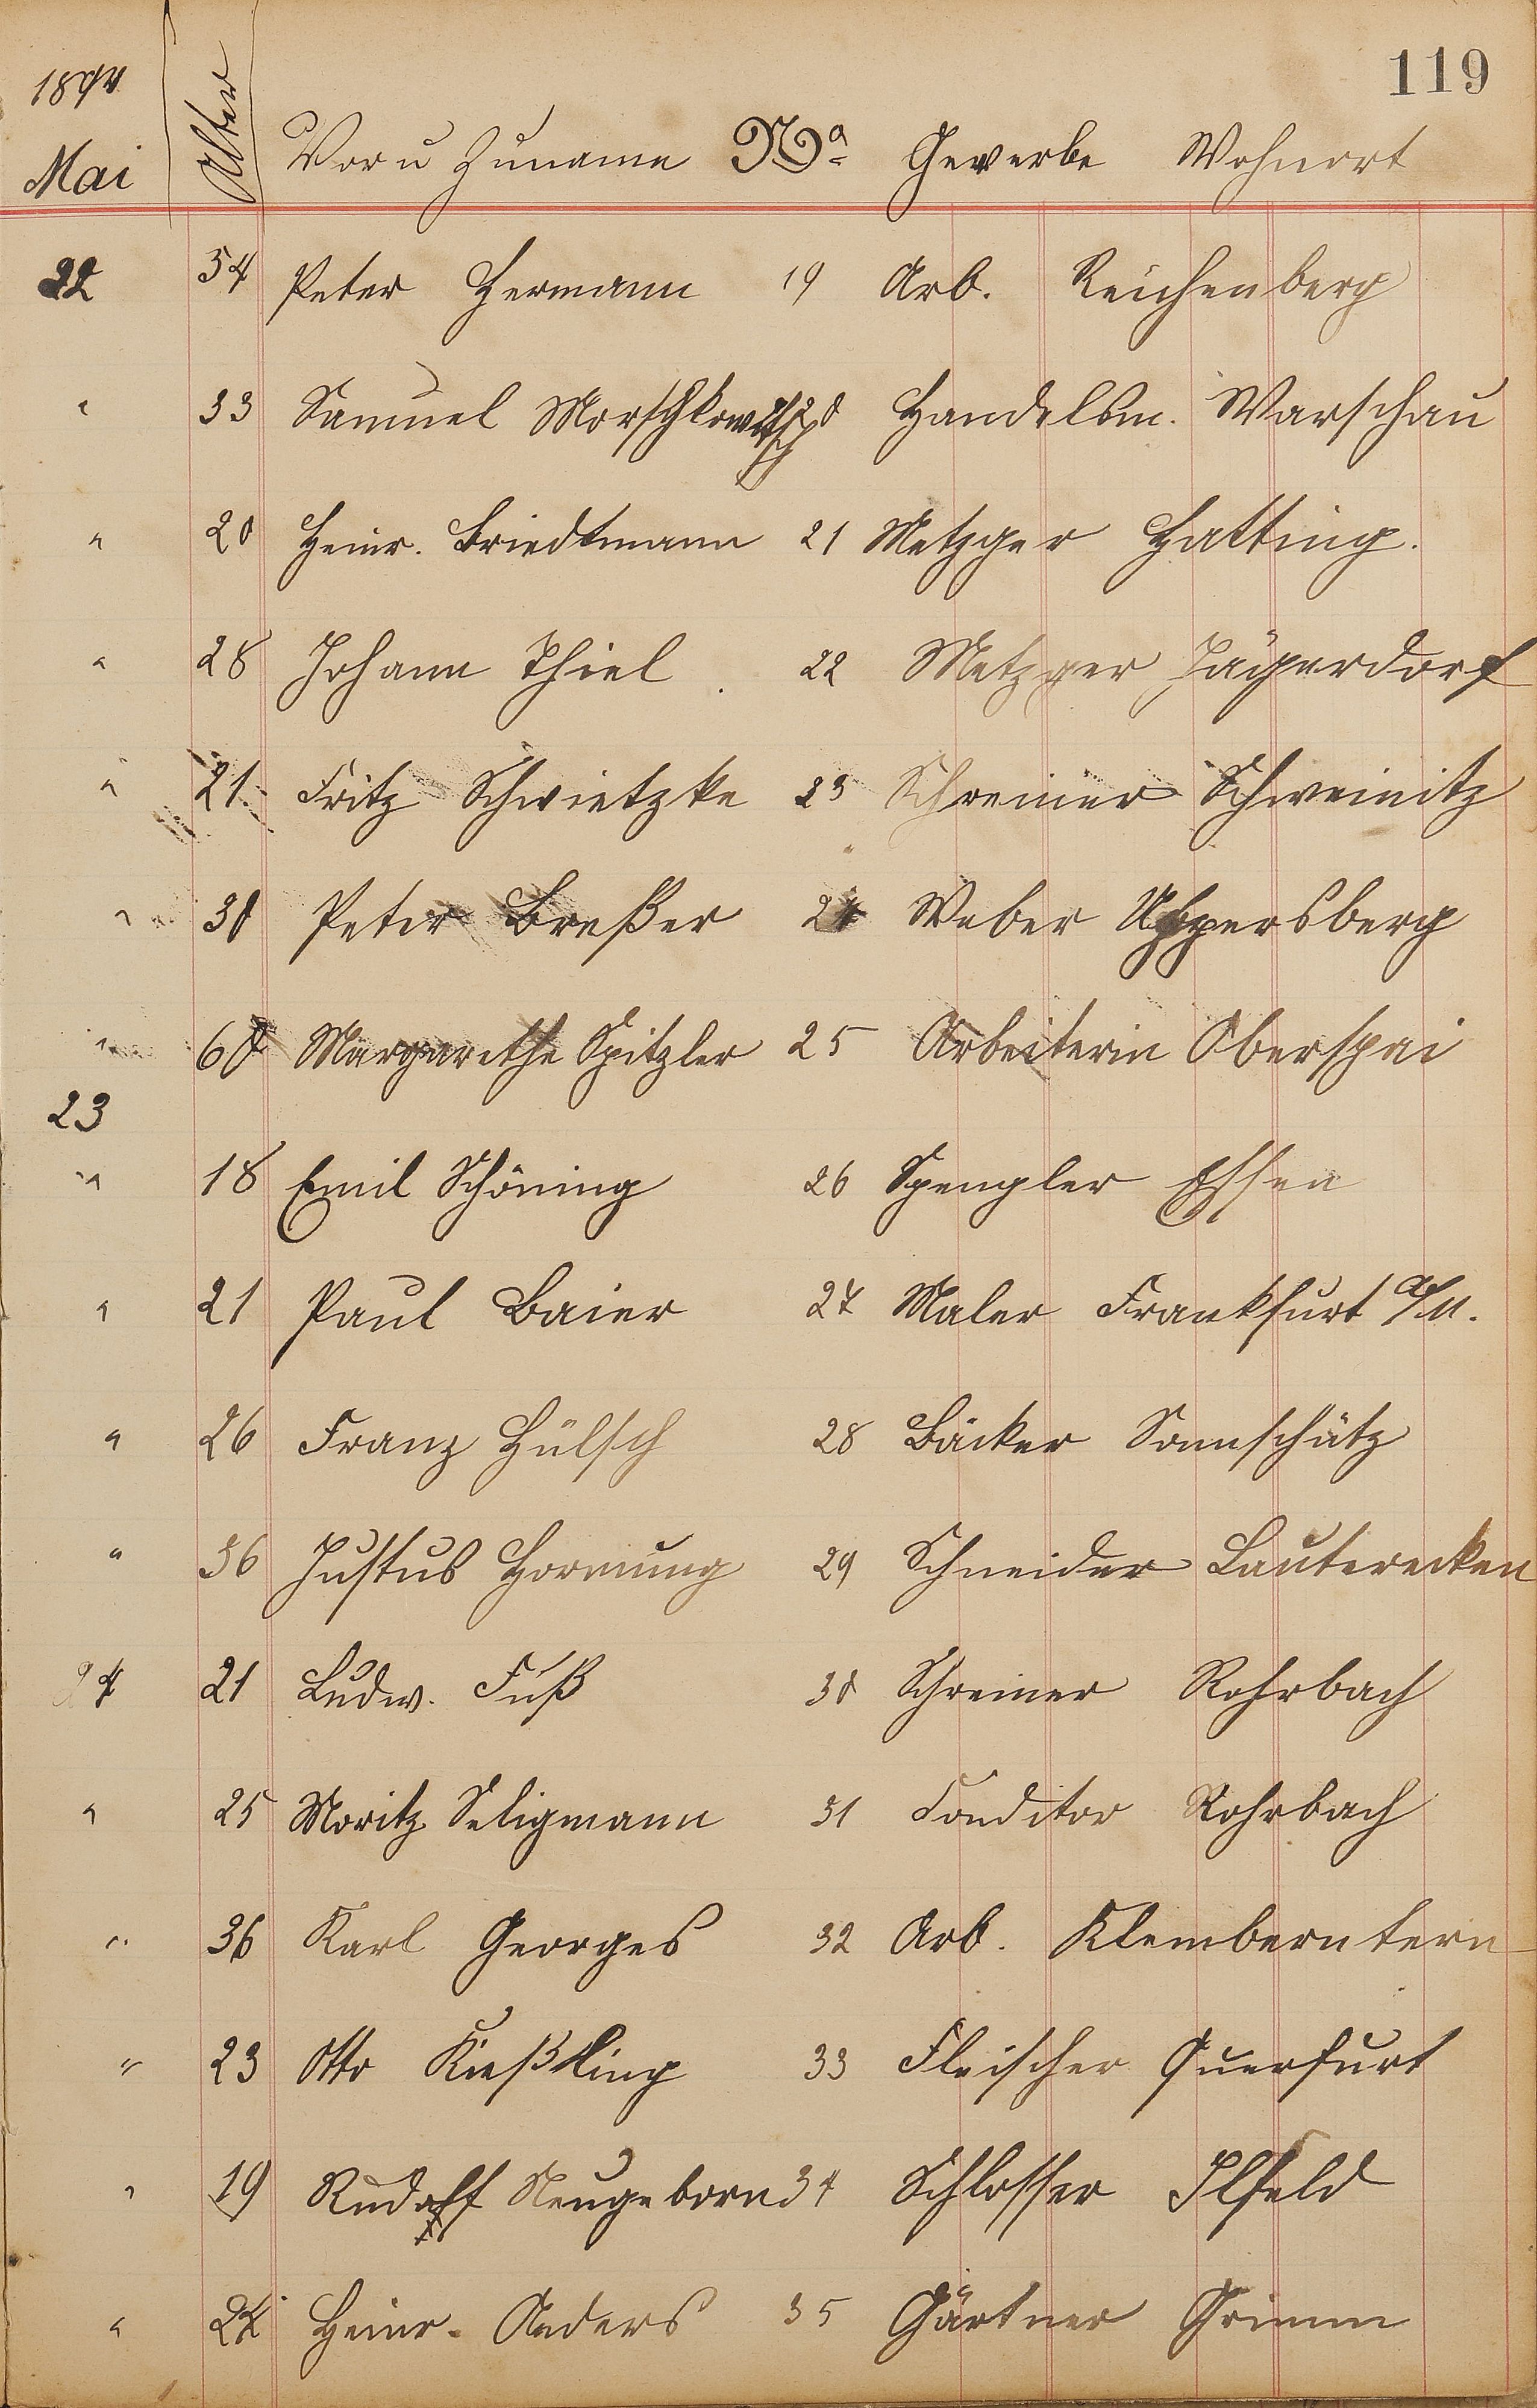 119
Mai Alter Vor u Zuname No Gewerbe Wohnort
22 54 Peter Hermann 19 Arb. Reichenberg
" 33 Samuel Morschkowitsch 20 Handelsm. Warschau
" 20 Heinr. Friedtmann 21 Metzger Hatting.
" 28 Johann Thiel 22 Metzger Jägerdorf
" 21 Fritz Schwietzke 23 Schreiner Schweinitz
" 30 Peter Breßer 24 Weber Uppersberg
" 60 Margarethe Spitzler 25 Arbeiterin Oberspai
23
" 18 Emil Schöning 26 Spengler Essen
" 21 Paul Baier 27 Maler Frankfurt a/M.
" 26 Franz Hülsch 28 Bäcker Sonnschütz
" 36 Justus Hornung 29 Schneider Lauterecken
24 21 Ludw. Fuß 30 Schreiner Rohrbach
" 25 Moritz Seligmann 31 Conditor Rohrbach
" 36 Karl Georges 32 Arb.
" 23 Otto Kießling 33 Fleischer Querfurt
" 19 Rudolf Neugeborn 34 Schlosser Ilfeld
" Heinr. Anders 35 Gärtner Grimm